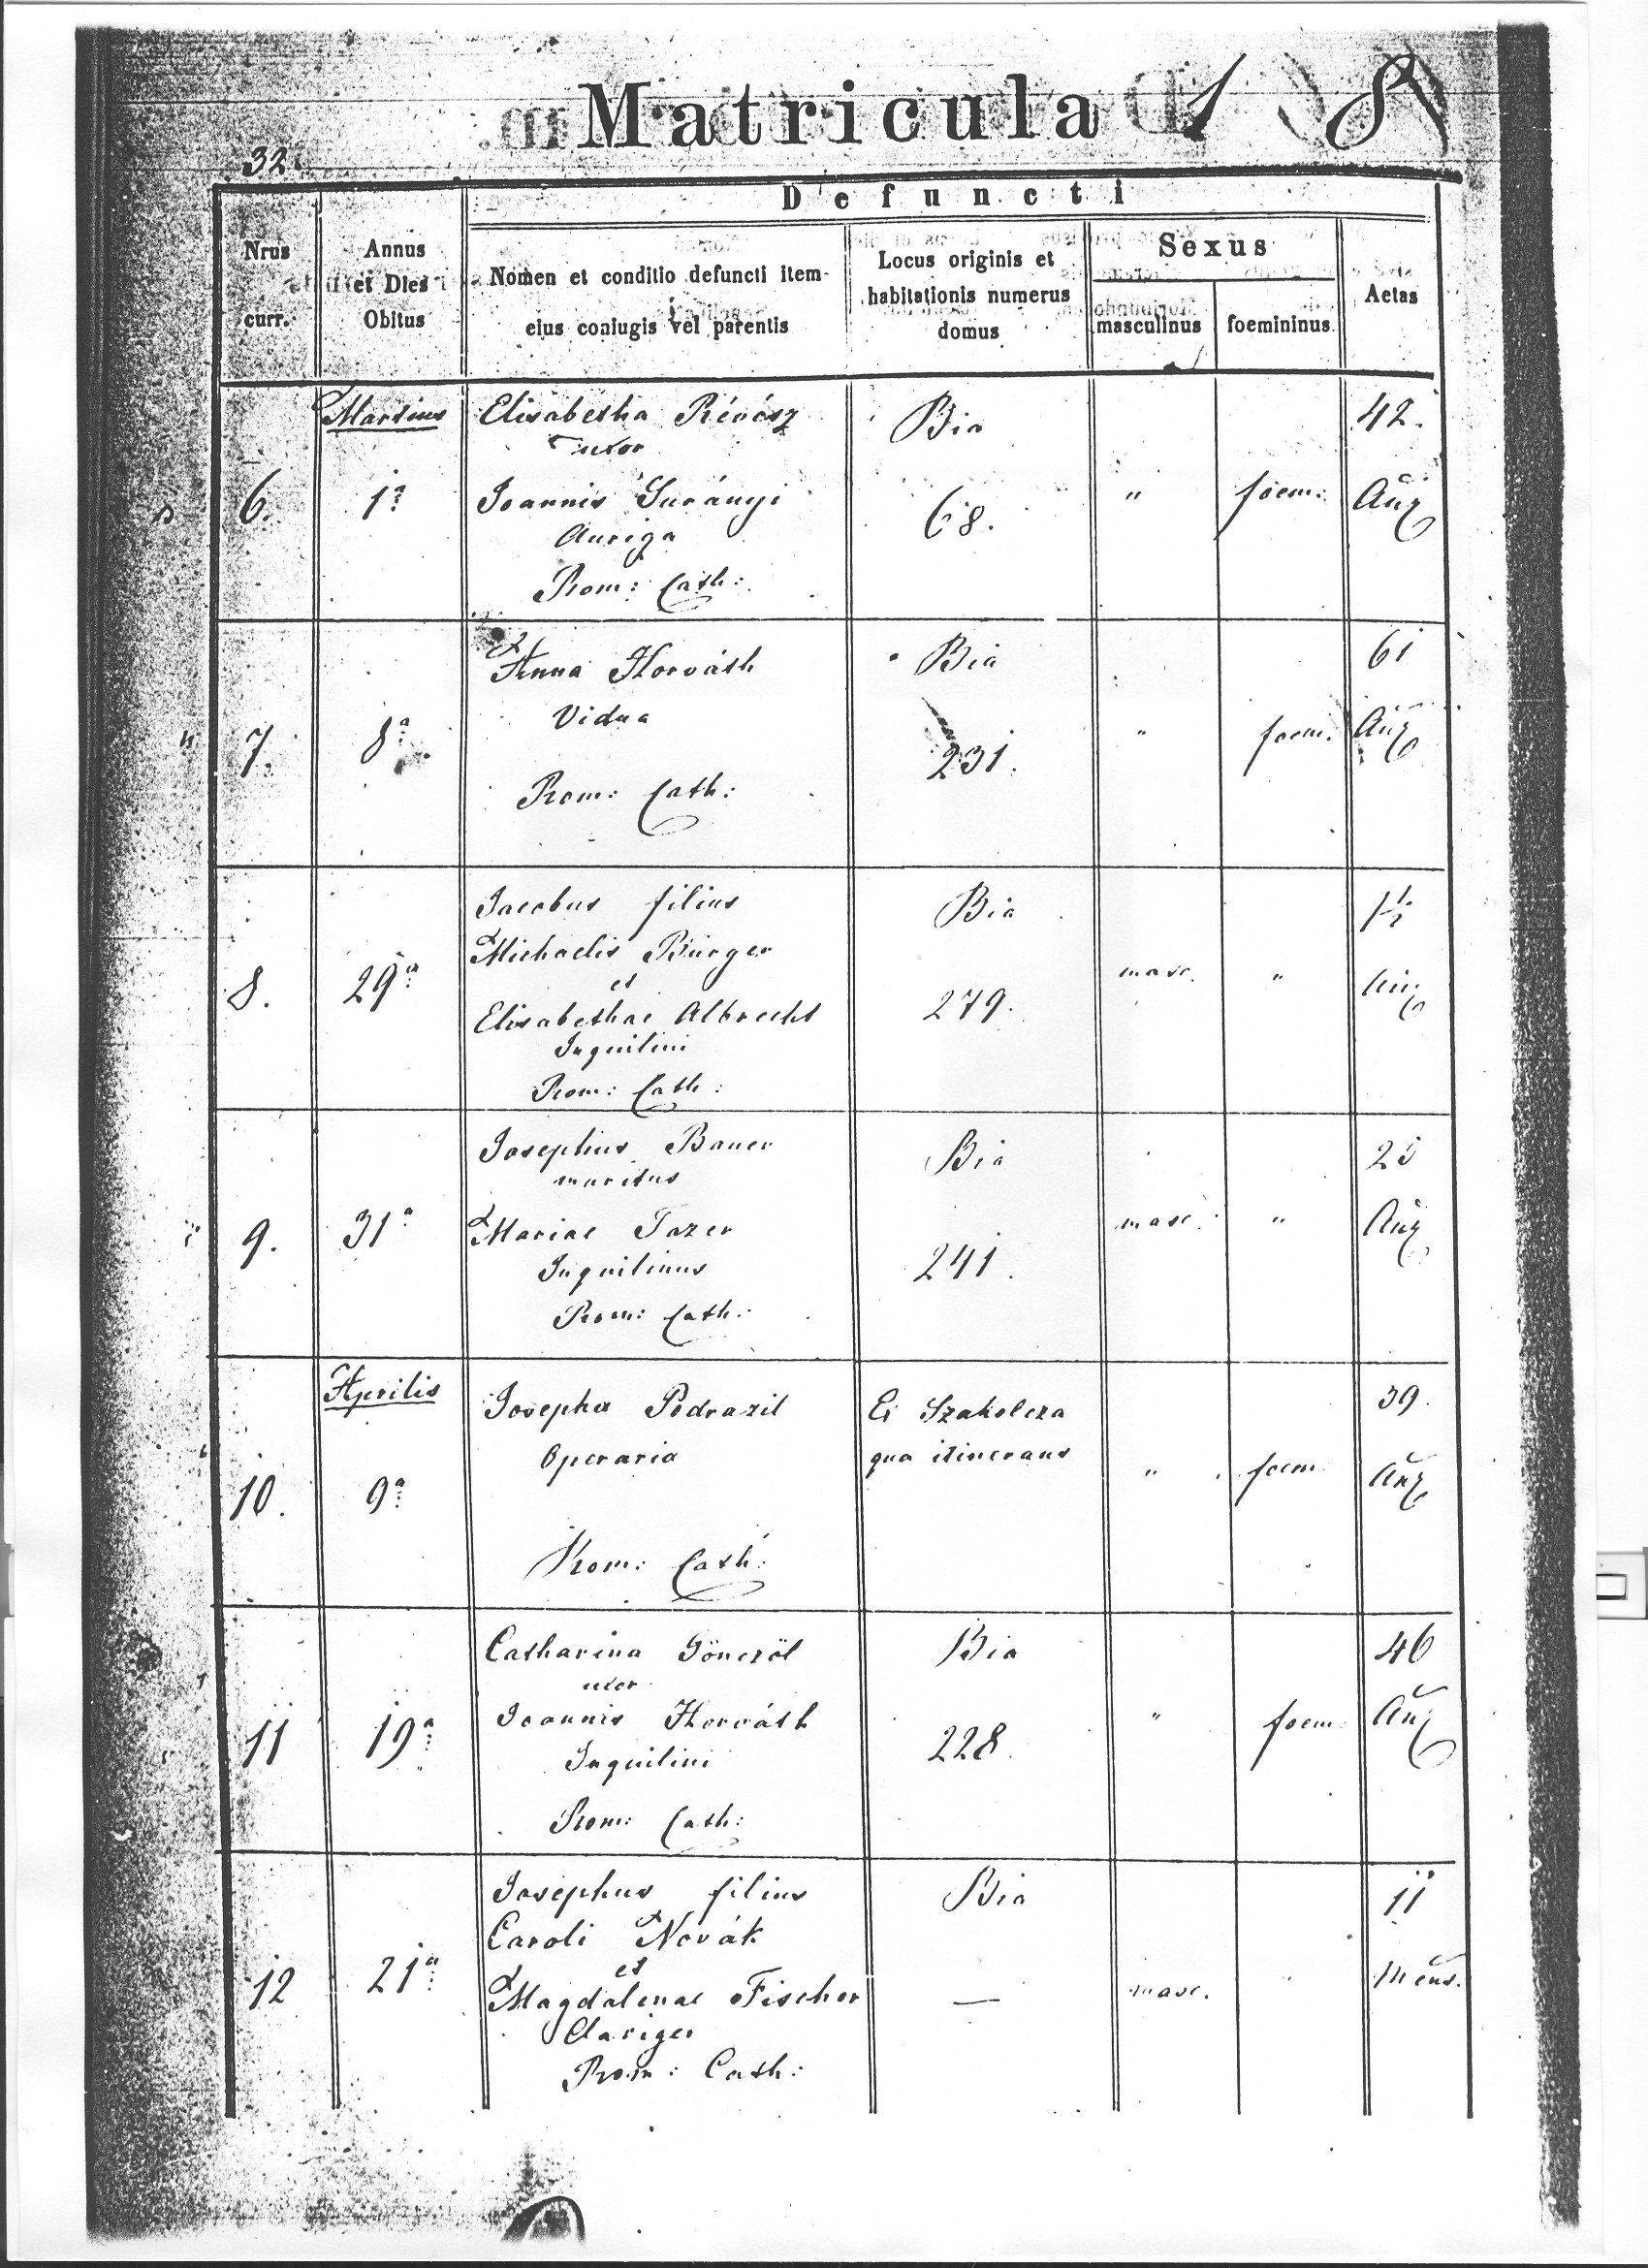 Matricula 1 8
32.
Defuncti
Nrus
curr.
Annus
et Dies
Obitus
Nomen et conditio defuncti item
eius coniugis vel parentis
Locus originis et
habitationis numerus
domus
Sexus
masculinus
foemininus
Aetas
Martius
6.
1a
Elisabetha Révész
uxor
Joannis Surányi
Auriga
Rom: Cath:
Bia
68.
"
foem:
42.
Añ
7.
8a
Anna Horváth
Vidua
Rom: Cath:
Bia
231.
"
foem.
61
Añ
8.
29a
Jacobus filius
Michaelis Bürger
et
Elisabethae Albrecht
Inquilini
Rom: Cath:
Bia
279.
masc.
"
9.
31a
Josephus Bauer
maritus
Mariae Tazer
Inquilinus
Rom: Cath:
Bia
241.
masc.
"
Añ
Aprilis
10.
9a
Josepha Podrazil
Operaria
Rom: Cath:
Ei Szakolcza
qua itinerans
"
foem
39.
Añ
11
19a
Catharina Gönczöl
uxor
Joannis Horváth
Inquilini
Rom: Cath:
Bia
228.
"
foem
46
Añ
12
21a
Josephus filius
Caroli Novák
et
Magdalenae Fischer
Claviger
Rom: Cath:
Bia
—
masc.
"
11
Mens.